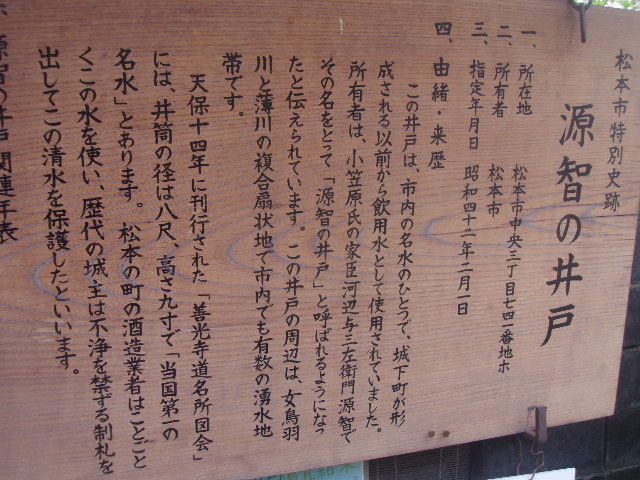 松本市特別史跡
源智の井戸
一、所在地 松本市中央三丁目七四一番地ホ
二、所有者 松本市
三、指定年月日 昭和四十二年二月一日
四、由緒・来歴
この井戸は、市内の名水のひとつで、城下町が形
成される以前から飲用水として使用されていました。
所有者は、小笠原氏の家臣河辺与三左衛門源智で
その名をとって「源智の井戸」と呼ばれるようになっ
たと伝えられています。この井戸の周辺は、女鳥羽
川と薄川の複合扇状地で市内でも有数の湧水地
帯です。
天保十四年に刊行された「善光寺道名所図会」
には、井筒の径は八尺、高さ九寸で「当国第一の
名水」とあります。松本の町の酒造業者はことごと
くこの水を使い、歴代の城主は不浄を禁ずる制札を
出してこの清水を保護したといいます。
源智の井戸関連年表